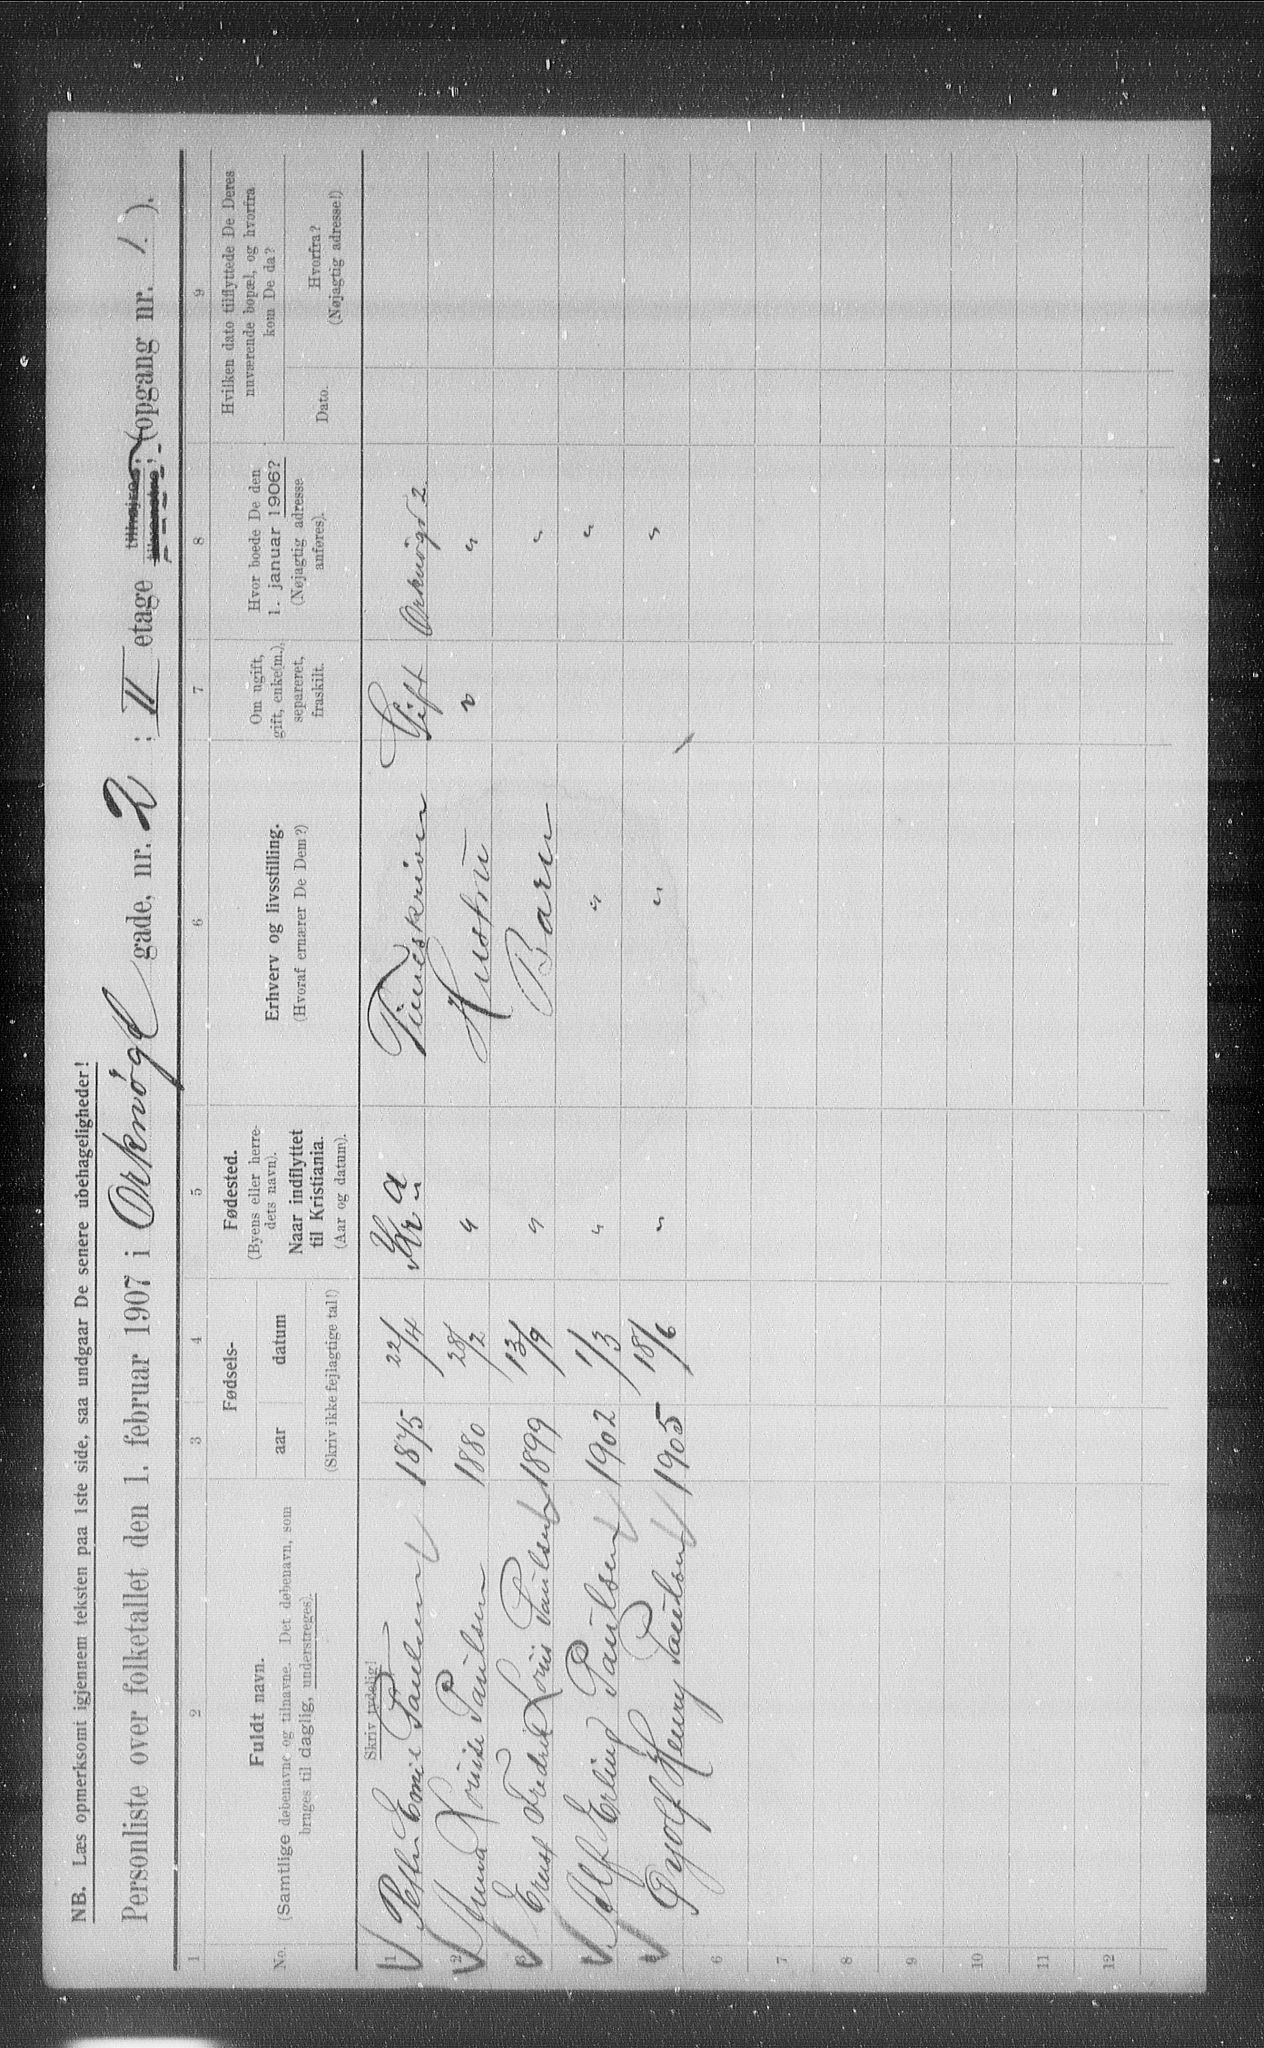 NB. Læs opmerksomt igjennem teksten paa 1ste side, saa undgaar De senere ubehageligheder!
Personliste over folketallet den 1. februar 1907 i Orknøgt gade, nr. 2 ; II etage tilhøjre; tilvenstre; (opgang nr. 1. ).
1 2 3 4 5 6 7 8 9
No.
Fuldt navn.
(Samtlige døbenavne og tilnavne. Det døbenavn, som
bruges til daglig, understreges).
Fødsels-
aar datum
(Skriv ikke fejlagtige tal!)
Fødested.
(Byens eller herre-
dets navn).
Naar indflyttet
til Kristiania.
(Aar og datum).
Erhverv og livsstilling.
(Hvoraf ernærer De Dem?)
Om ugift,
gift, enke(m.),
separeret,
fraskilt.
Hvor boede De den
1. januar 1906?
(Nøjagtig adresse
anføres).
Hvilken dato tilflyttede De Deres
nuværende bopæl, og hvorfra
kom De da?
Dato.
Hvorfra?
(Nøjagtig adresse!)
Skriv tydelig!
1 Emil Paulsen 1875 22/4 Kra Timeskriver Gift 2.
2 Louise Paulsen 1880 28/2 " Hustru " "
3 Ernst Fredrik Louis Paulsen 1899 13/9 " Barn "
4 Alf Erling Paulsen 1902 1/3 " " "
Henry Paulsen 1905 18/6 " " "
6
7
8
9
10
11
12